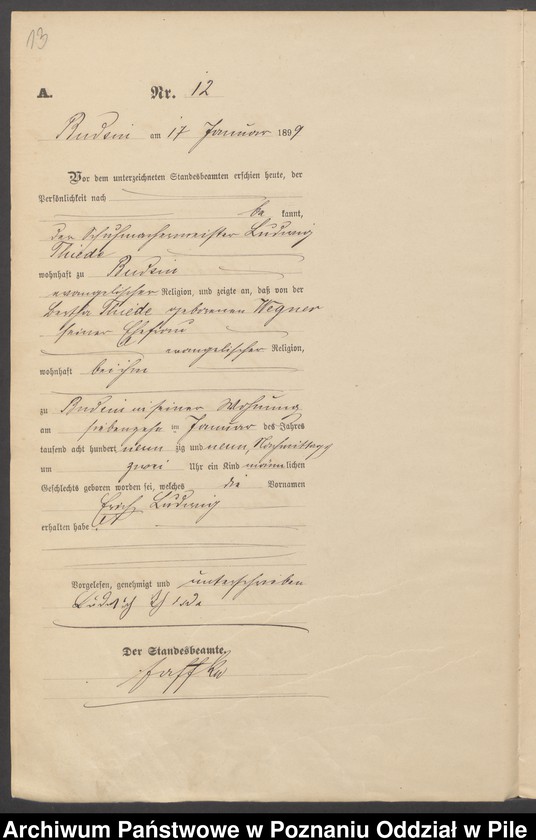 13
A. Nr. 12
Rudsin am 17 Januar 1899
Vor dem unterzeichneten Standesbeamten erschien heute, der
Persönlichkeit nach
be kannt,
der Schuhmachermeister Ludwig
Thiede
wohnhaft zu Rudsin
evangelischer Religion, und zeigte an, daß von der
Bertha Thiede geborenen Wegner
seiner Ehefrau
evangelischer Religion,
wohnhaft bei ihm
zu Rudsin in seiner Wohnung
am siebenzehn ten Januar des Jahres
tausend acht hundert neun zig und neun, Nachmittags
um zwei Uhr ein Kind männ lichen
Geschlechts geboren worden sei, welches die Vornamen
Erich Ludwig
erhalten habe
Vorgelesen, genehmigt und unterschrieben
Ludwig Thiede
Der Standesbeamte.
Archiwum Państwowe w Poznaniu Oddział w Pile